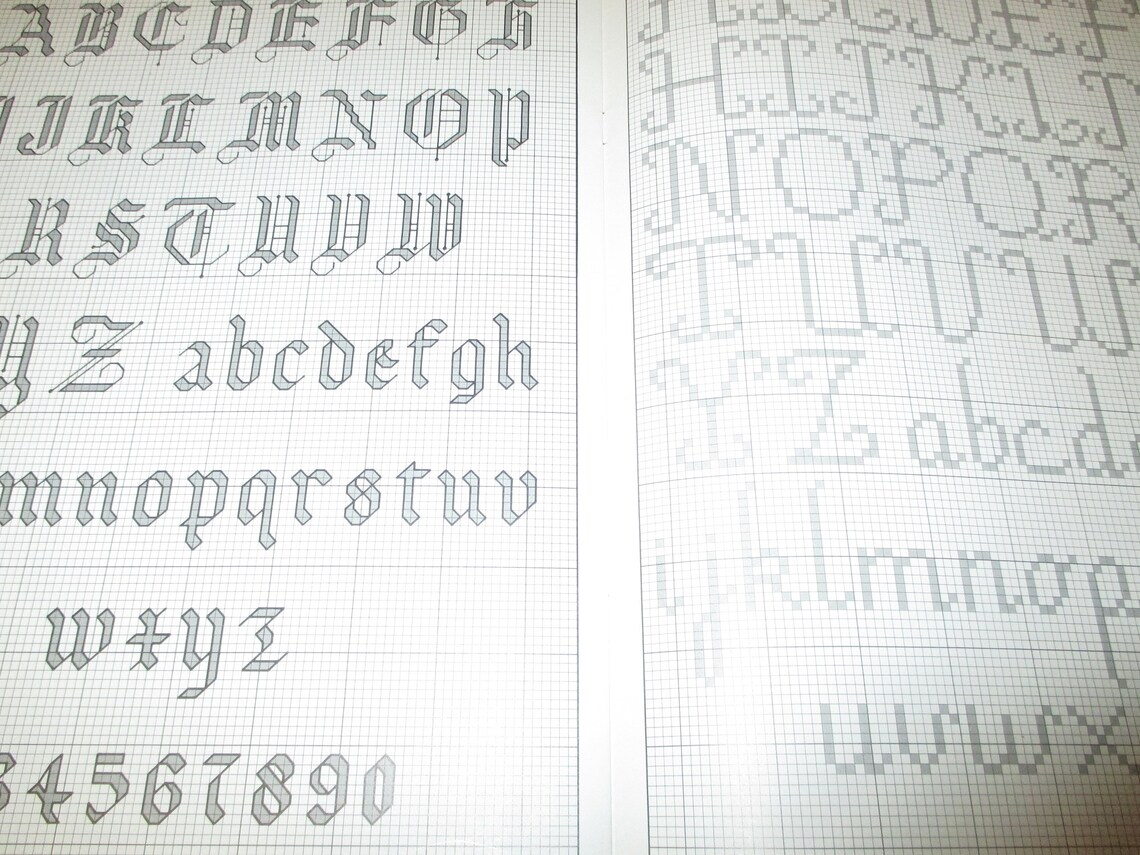 A B C D E F G H
J K L M N O P
R S T U V W
Y Z a b c d e f g h
m n o p q r s t u v
w x y z
3 4 5 6 7 8 9 0
H I J K L
N O P Q R
T U V W
Y Z a b c d
i j k l m n o p
u v w x